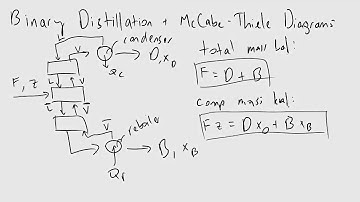 Binary Distillation + McCabe-Thiele Diagrams
condensor
V
L
D, x_D
Q_C
total mass bal:
F = D + B
F, z
V
L
L̄
V̄
comp mass bal:
F z = D x_D + B x_B
V̄
L̄
reboiler
B, x_B
Q_r